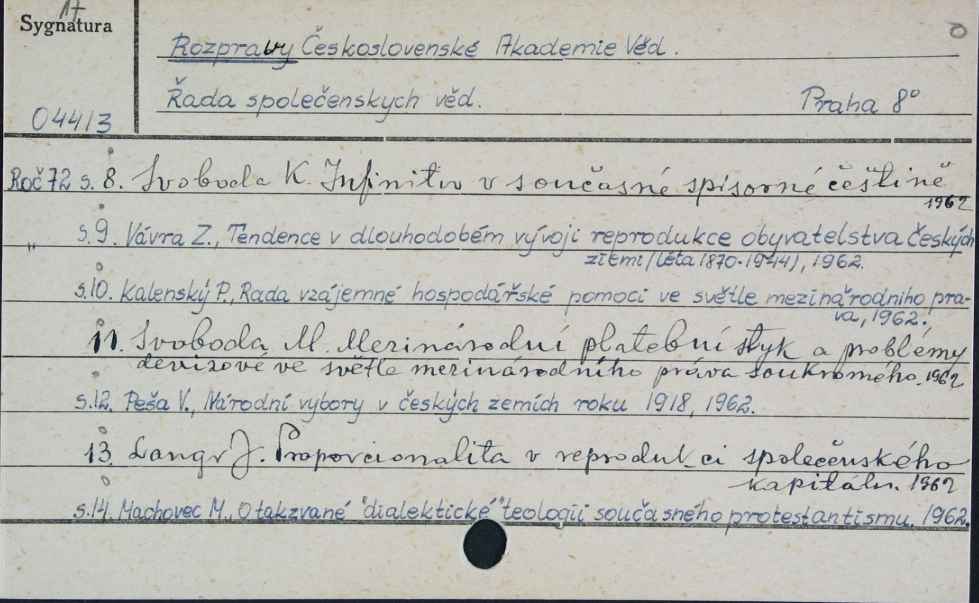 17
Sygnatura
Rozpravy Československé Akademie Věd.
Řada společenskych věd.
Praha 8°
04413
Roč 72 s. 8. Svoboda K. Infinitiv v současné spisovné češtině
1962
„ s.9. Vávra Z., Tendence v dlouhodobém vývoji reprodukce obyvatelstva českých
ziemi (léta 1870-1944), 1962.
s.10. Kalenský P., Rada vzájemné hospodářské pomoci ve světle mezinárodniho pra-
va, 1962.
11. Svoboda M. Mezinárodní platební styk a problémy
devizové ve světle mezinárodního práva soukromého. 1962
s.12. Peša V., Národní vybory v českých zemích roku 1918, 1962.
13. Langr J. Proporcionalita v reprodukci společenského
kapitálu. 1962
s.14. Machovec M., O takzvané "dialektické" teologii současného protestantismu. 1962.